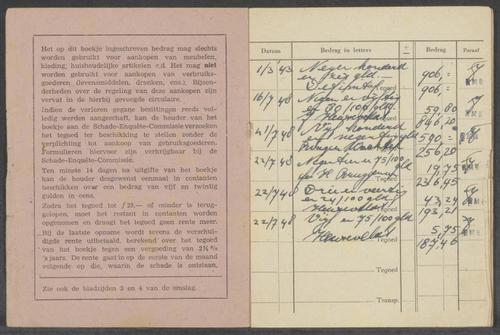 Het op dit boekje ingeschreven bedrag mag slechts
worden gebruikt voor aankopen van meubelen,
kleding, huishoudelijke artikelen e.d. Het mag niet
worden gebruikt voor aankopen van verbruiks-
goederen (levensmiddelen, dranken, enz.). Bijzon-
derheden over de regeling van deze aankopen zijn
vervat in de hierbij gevoegde circulaire.
Indien de verloren gegane bezittingen reeds volle-
dig werden aangeschaft, kan de houder van het
boekje aan de Schade-Enquête-Commissie verzoeken
het tegoed ter beschikking te stellen zonder de
verplichting tot aankoop van gebruiksgoederen.
Formulieren hiervoor zijn verkrijgbaar bij de
Schade-Enquête-Commissie.
Ten minste 14 dagen na uitgifte van het boekje
kan de houder desgewenst eenmaal in contanten
beschikken over een bedrag van vijf en twintig
gulden in eens.
Zodra het tegoed tot ƒ 25,— of minder is terug-
gelopen, moet het restant in contanten worden
opgenomen en draagt het tegoed geen rente meer.
Bij de laatste opname wordt tevens de verschul-
digde rente uitbetaald, berekend over het tegoed
van het boekje tegen een vergoeding van
's jaars. De rente gaat in op de eerste van de maand
volgende op die, waarin de schade is ontstaan.
Zie ook de bladzijden 3 en 4 van de omslag.
Datum Bedrag in letters + Bedrag Paraaf
Negen honderd
en zes gld. 906,=
Tegoed 906,=
16/7 48 59,80
Tegoed 846,20
21/7 48 Vijf honderd
en negentig gld 590,=
Tegoed 256,20
22/7 48 Negentien 75/100 19,75
Tegoed 236,45
22/7 48 Drie en veertig
en 24/100 gld 43,24
Tegoed 193,21
22/7 48 Vijf en 75/100 gld 5,75
Tegoed 187,46
Tegoed
Transp.